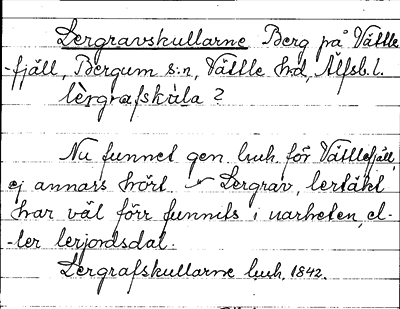 Lergravskullarne Berg på Vättle
-fjäll, Bergum s:n, Vättle hd, Älfsb.l.
lèrgrafskùla ?
Nu funnet gen. huh. för Vättlefjäll,
ej annars hört. Lergrav, lertäkt
har väl förr funnits i narheten, el-
-ler lerjordsdal.
Lergrafskullarne huh, 1842.